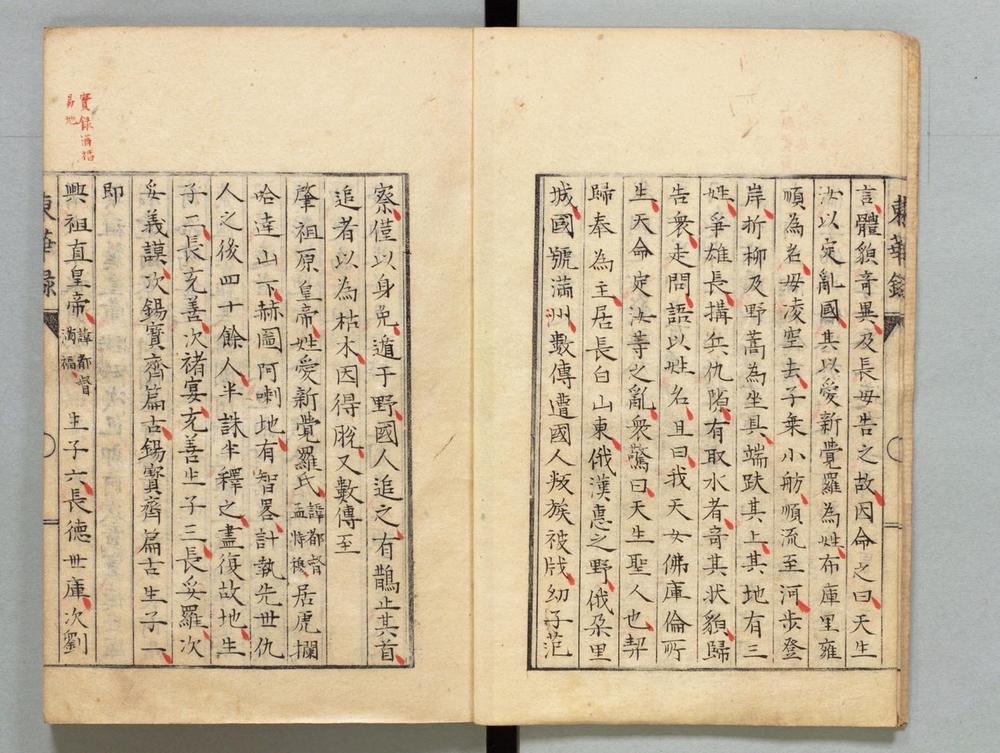 言體貌竒異及長母告之故因命之曰天生
汝以定亂國其以愛新覺羅為姓布庫里雍
順為名母凌空去子乗小舫順流至河步登
岸折柳及野蒿為坐具端趺其上其地有三
姓爭雄長搆兵仇隙有取水者竒其狀貌歸
告衆走問語以姓名且曰我天女佛庫倫所
生天命定汝等之亂衆驚曰天生聖人也舁
歸奉為主居長白山東俄漢惠之野俄朶里
城國號滿洲數傳遭國人叛族被戕幼子范
東華錄
察僅以身免遁于野國人追之有鵲止其首
追者以為枯木因得脫又數傳至
肇祖原皇帝姓愛新覺羅氏諱都督孟特穆居虎欄
哈達山下赫圖阿喇地有智畧計執先世仇
人之後四十餘人半誅半釋之盡復故地生
子二長充善次禇宴充善生子三長妥羅次
妥義謨次錫寳齊篇古錫寳齊篇古生子一
即
興祖直皇帝諱都督滿福生子六長德世庫次劉
實錄滿福
易地
東華錄